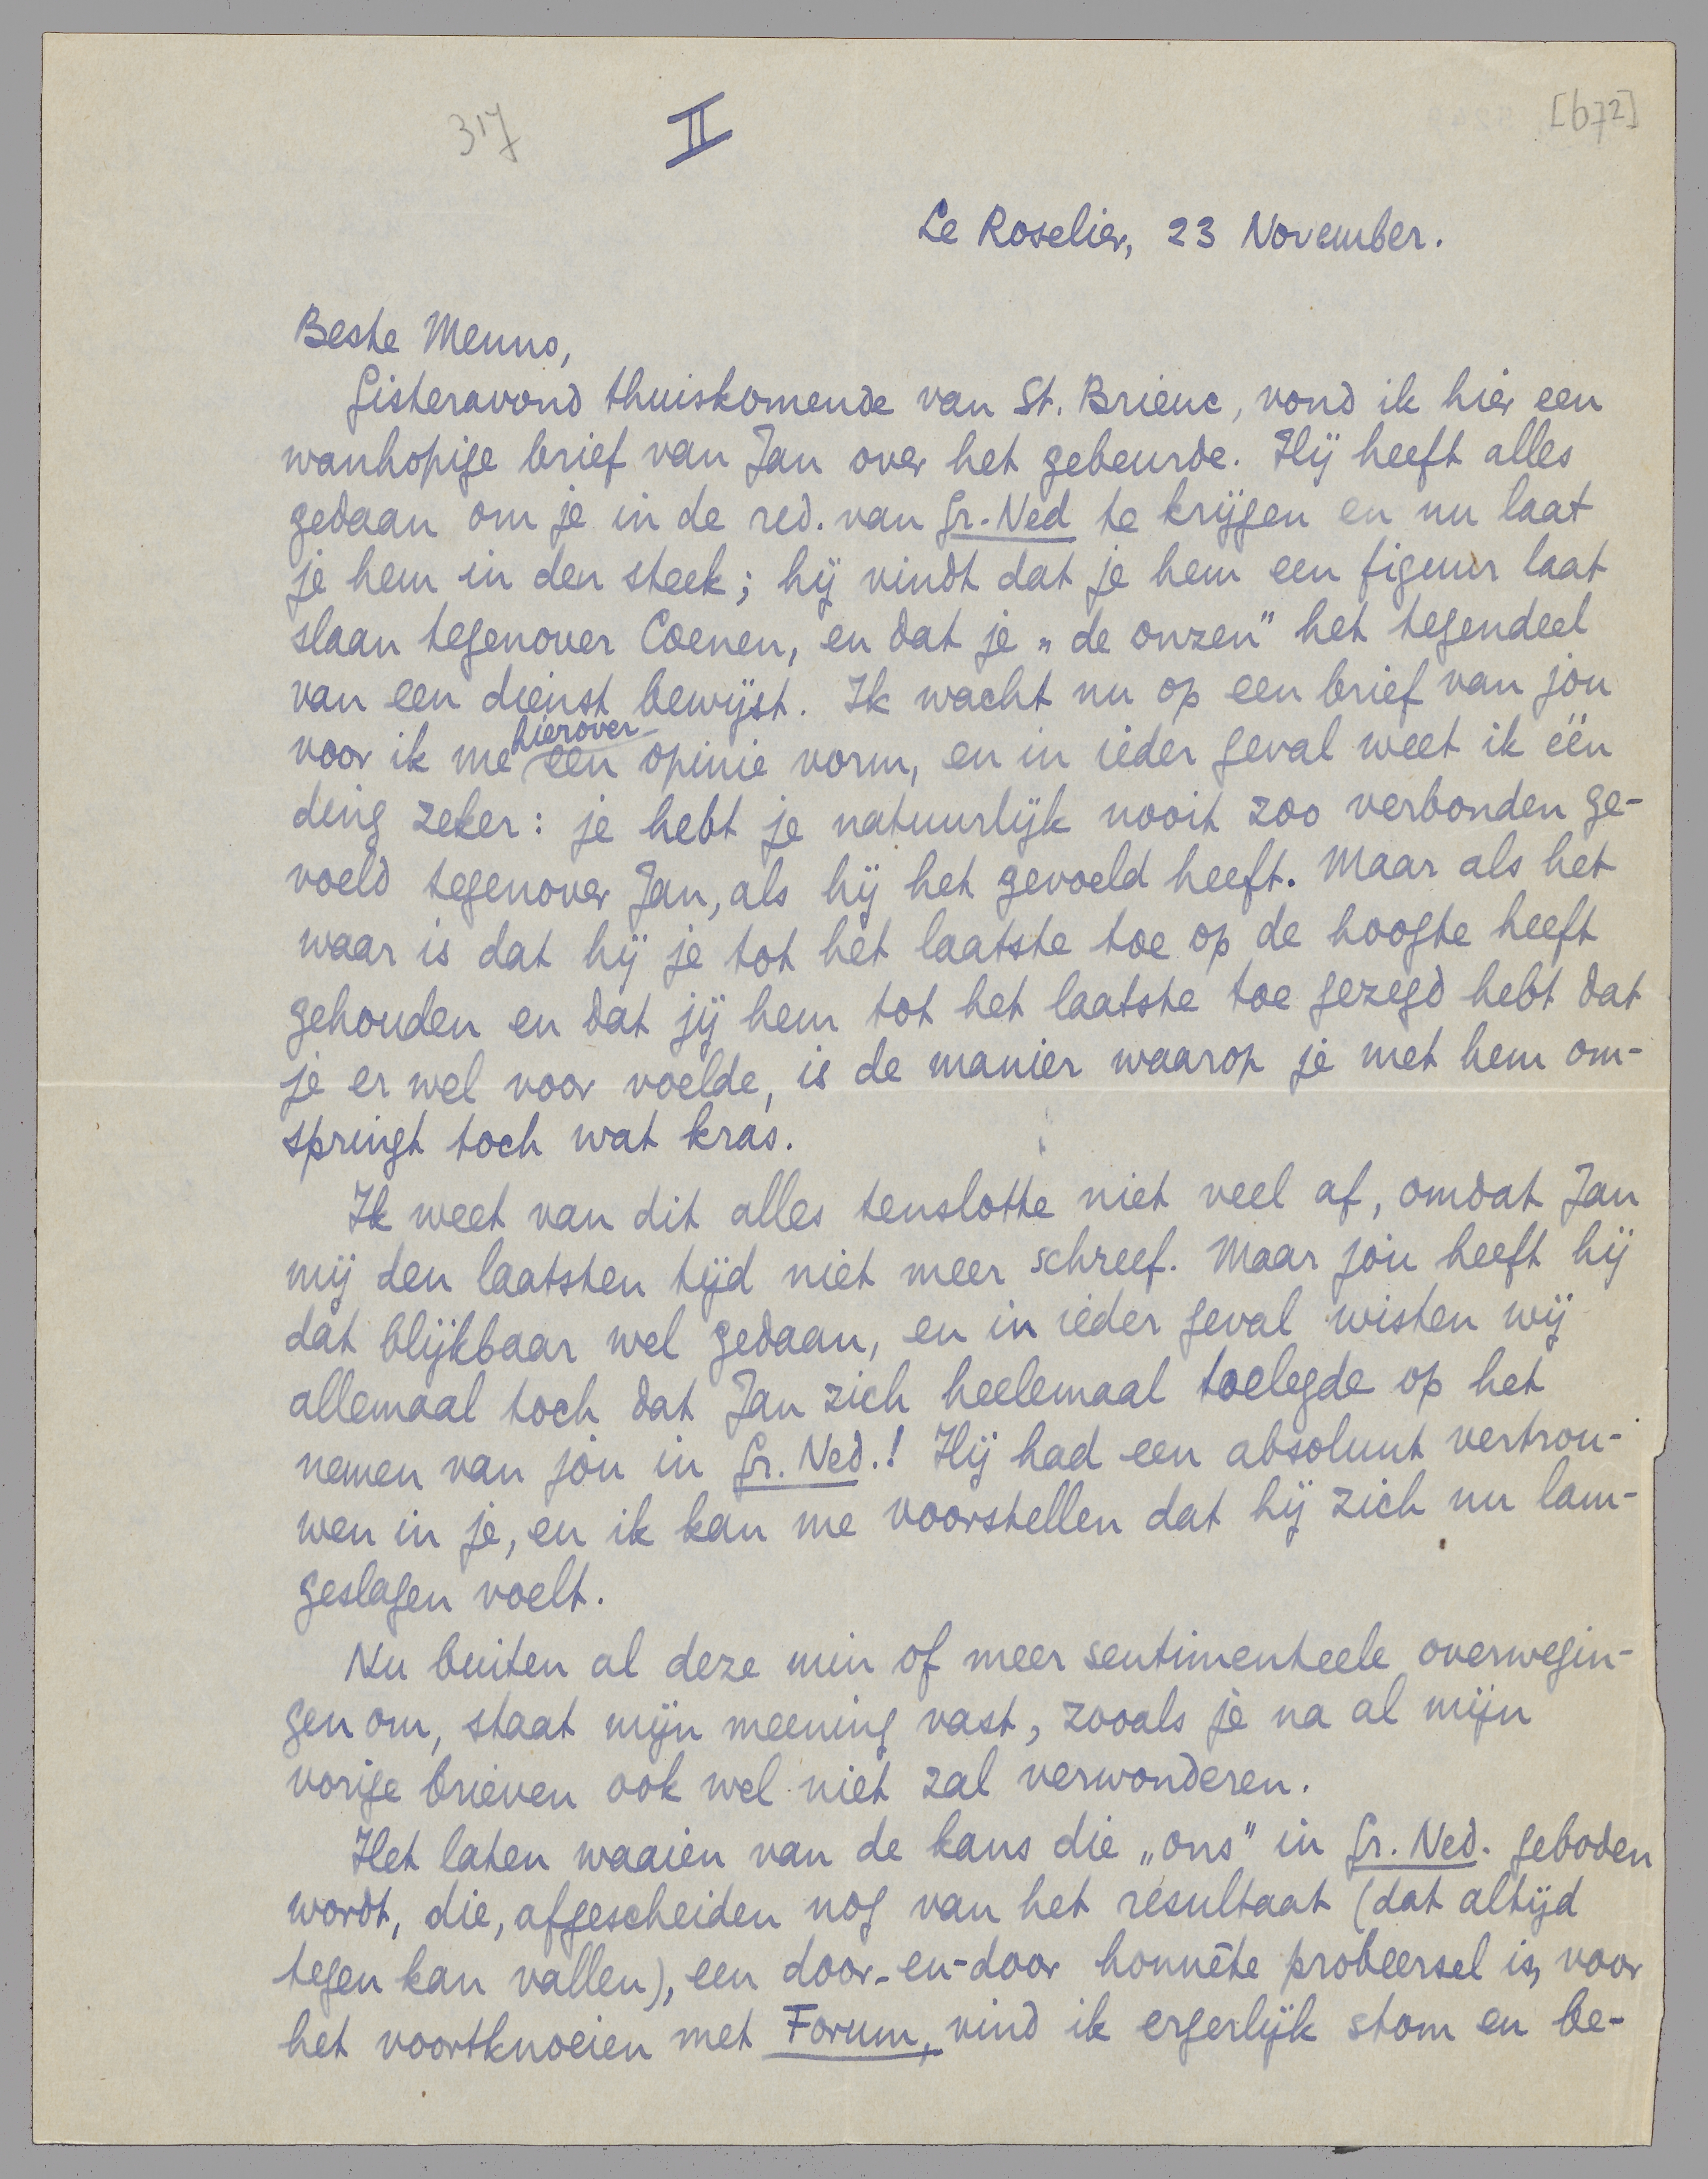 317
II
[672]
Le Roselier, 23 November.
Beste Menno,
Gisteravond thuiskomende van St. Brieuc, vond ik hier een
wanhopige brief van Jan over het gebeurde. Hij heeft alles
gedaan om je in de red. van Gr.-Ned te krijgen en nu laat
je hem in den steek; hij vindt dat je hem een figuur laat
slaan tegenover Coenen, en dat je „de onzen" het tegendeel
van een dienst bewijst. Ik wacht nu op een brief van jou
hierover
voor ik me een opinie vorm, en in ieder geval weet ik één
ding zeker: je hebt je natuurlijk nooit zoo verbonden ge-
voeld tegenover Jan, als hij het gevoeld heeft. Maar als het
waar is dat hij je tot het laatste toe op de hoogte heeft
gehouden en dat jij hem tot het laatste toe gezegd hebt dat
je er wel voor voelde, is de manier waarop je met hem om-
springt toch wat kras.
Ik weet van dit alles tenslotte niet veel af, omdat Jan
mij den laatsten tijd niet meer schreef. Maar jóu heeft hij
dat blijkbaar wel gedaan, en in ieder geval wisten wij
allemaal toch dat Jan zich heelemaal toelegde op het
nemen van jóu in Gr. Ned.! Hij had een absoluut vertrou-
wen in je, en ik kan me voorstellen dat hij zich nu lam-
geslagen voelt.
Nu buiten al deze min of meer sentimenteele overwegin-
gen om, staat mijn meening vast, zooals je na al mijn
vorige brieven ook wel niet zal verwonderen.
Het laten waaien van de kans die „ons" in Gr. Ned. geboden
wordt, die, afgescheiden nog van het resultaat (dat altijd
tegen kan vallen), een door-en-door honnête probeersel is, voor
het voortknoeien met Forum, vind ik ergerlijk stom en be-